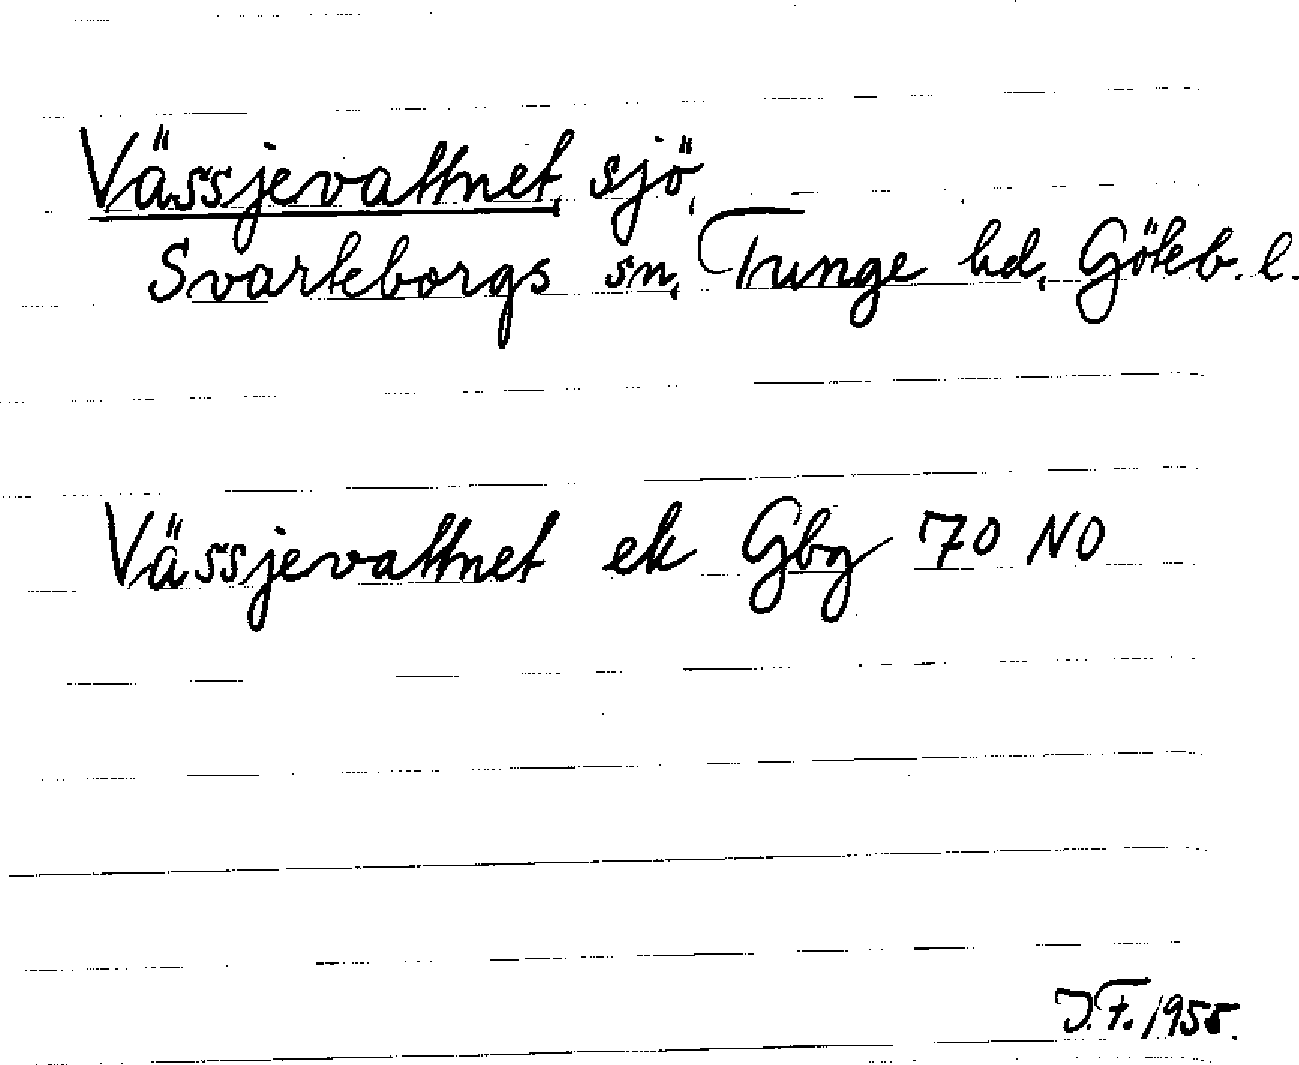 Vässjevattnet, sjö,
Svarteborgs sn, Tunge hd, Göteb. l.
Vässjevattnet ek Gbg 70 NO
J.F. 1955.